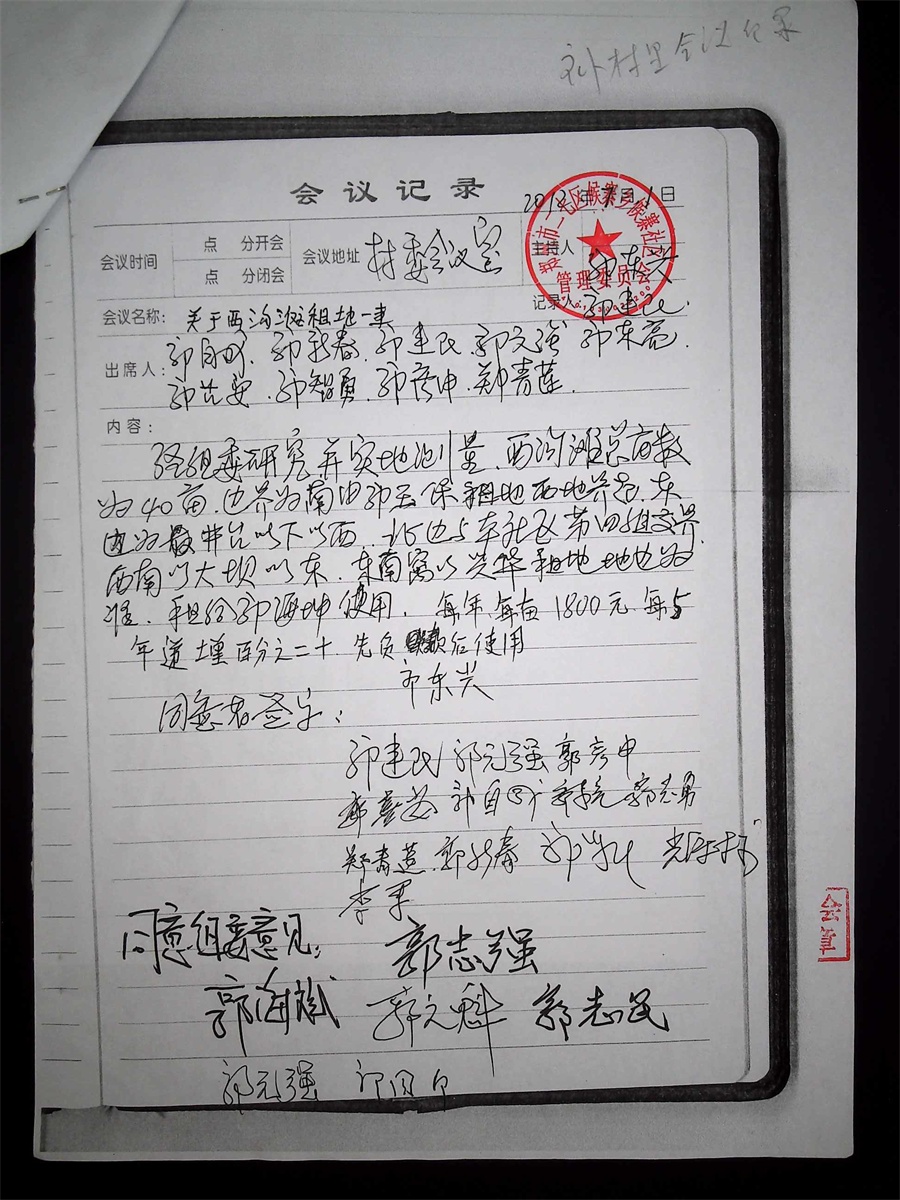 补村里会议记录
会议记录
2013年7月1日
郑州市二七区侯寨乡侯寨社区
管理委员会
会议时间 点 分开会
点 分闭会
会议地址 村委会议室
主持人 郭东兴
记录人 郭建民
会议名称: 关于西沟滩租地一事
出席人: 郭新春 郭建民 郭文强 郭东亮
郭智勇 郭彦中 郑青莲
内容:
经组委研究并实地测量,西沟滩总亩数
为40亩,边界为南由郭玉保租地西地界 东
边为 井台以下以西,北边与本社区第四组交界
西南以大坝以东,东南离以兴华租地地边为
准,租给郭海坤使用,每年每亩1800元每5
年递增百分之二十,先负款后使用
郭东兴
同意者签字:
郭建民 郭元强 郭彦中
郭志勇
郑青莲 郭新春
李军
同意组委意见: 郭志强
郭海斌 郭元魁 郭志民
郭元强
会
章